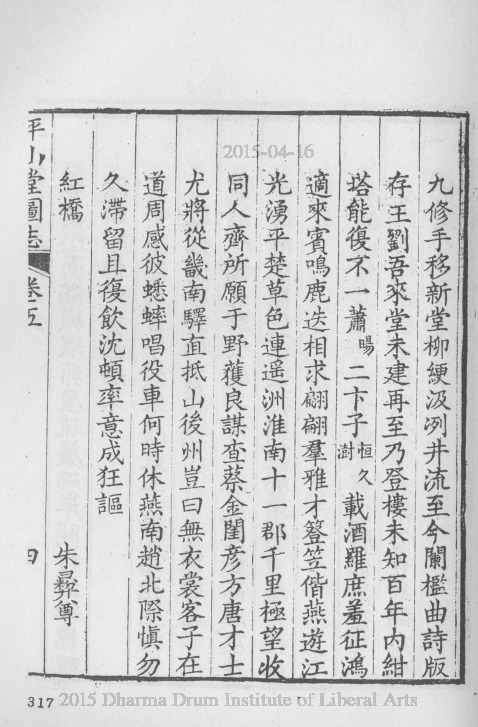 2015-04-16
九修手移新堂柳綆汲冽井流至今闌檻曲詩版
存王劉吾來堂未建再至乃登樓未知百年內紺
塔能復不一蕭暘二卞子恒久澍載酒羅庶羞征鴻
適來賓鳴鹿迭相求翩翩羣雅才簦笠偕燕遊江
光湧平楚草色連遥洲淮南十一郡千里極望收
同人齊所願于野獲良謀查蔡金閨彥方唐才士
尤將從畿南驛直抵山後州豈曰無衣裳客子在
道周感彼蟋蟀唱役車何時休燕南趙北際慎勿
久滯留且復飲沈頓率意成狂謳
紅橋 朱彝尊
平山堂圖志 卷五 四
317 2015 Dharma Drum Institute of Liberal Arts